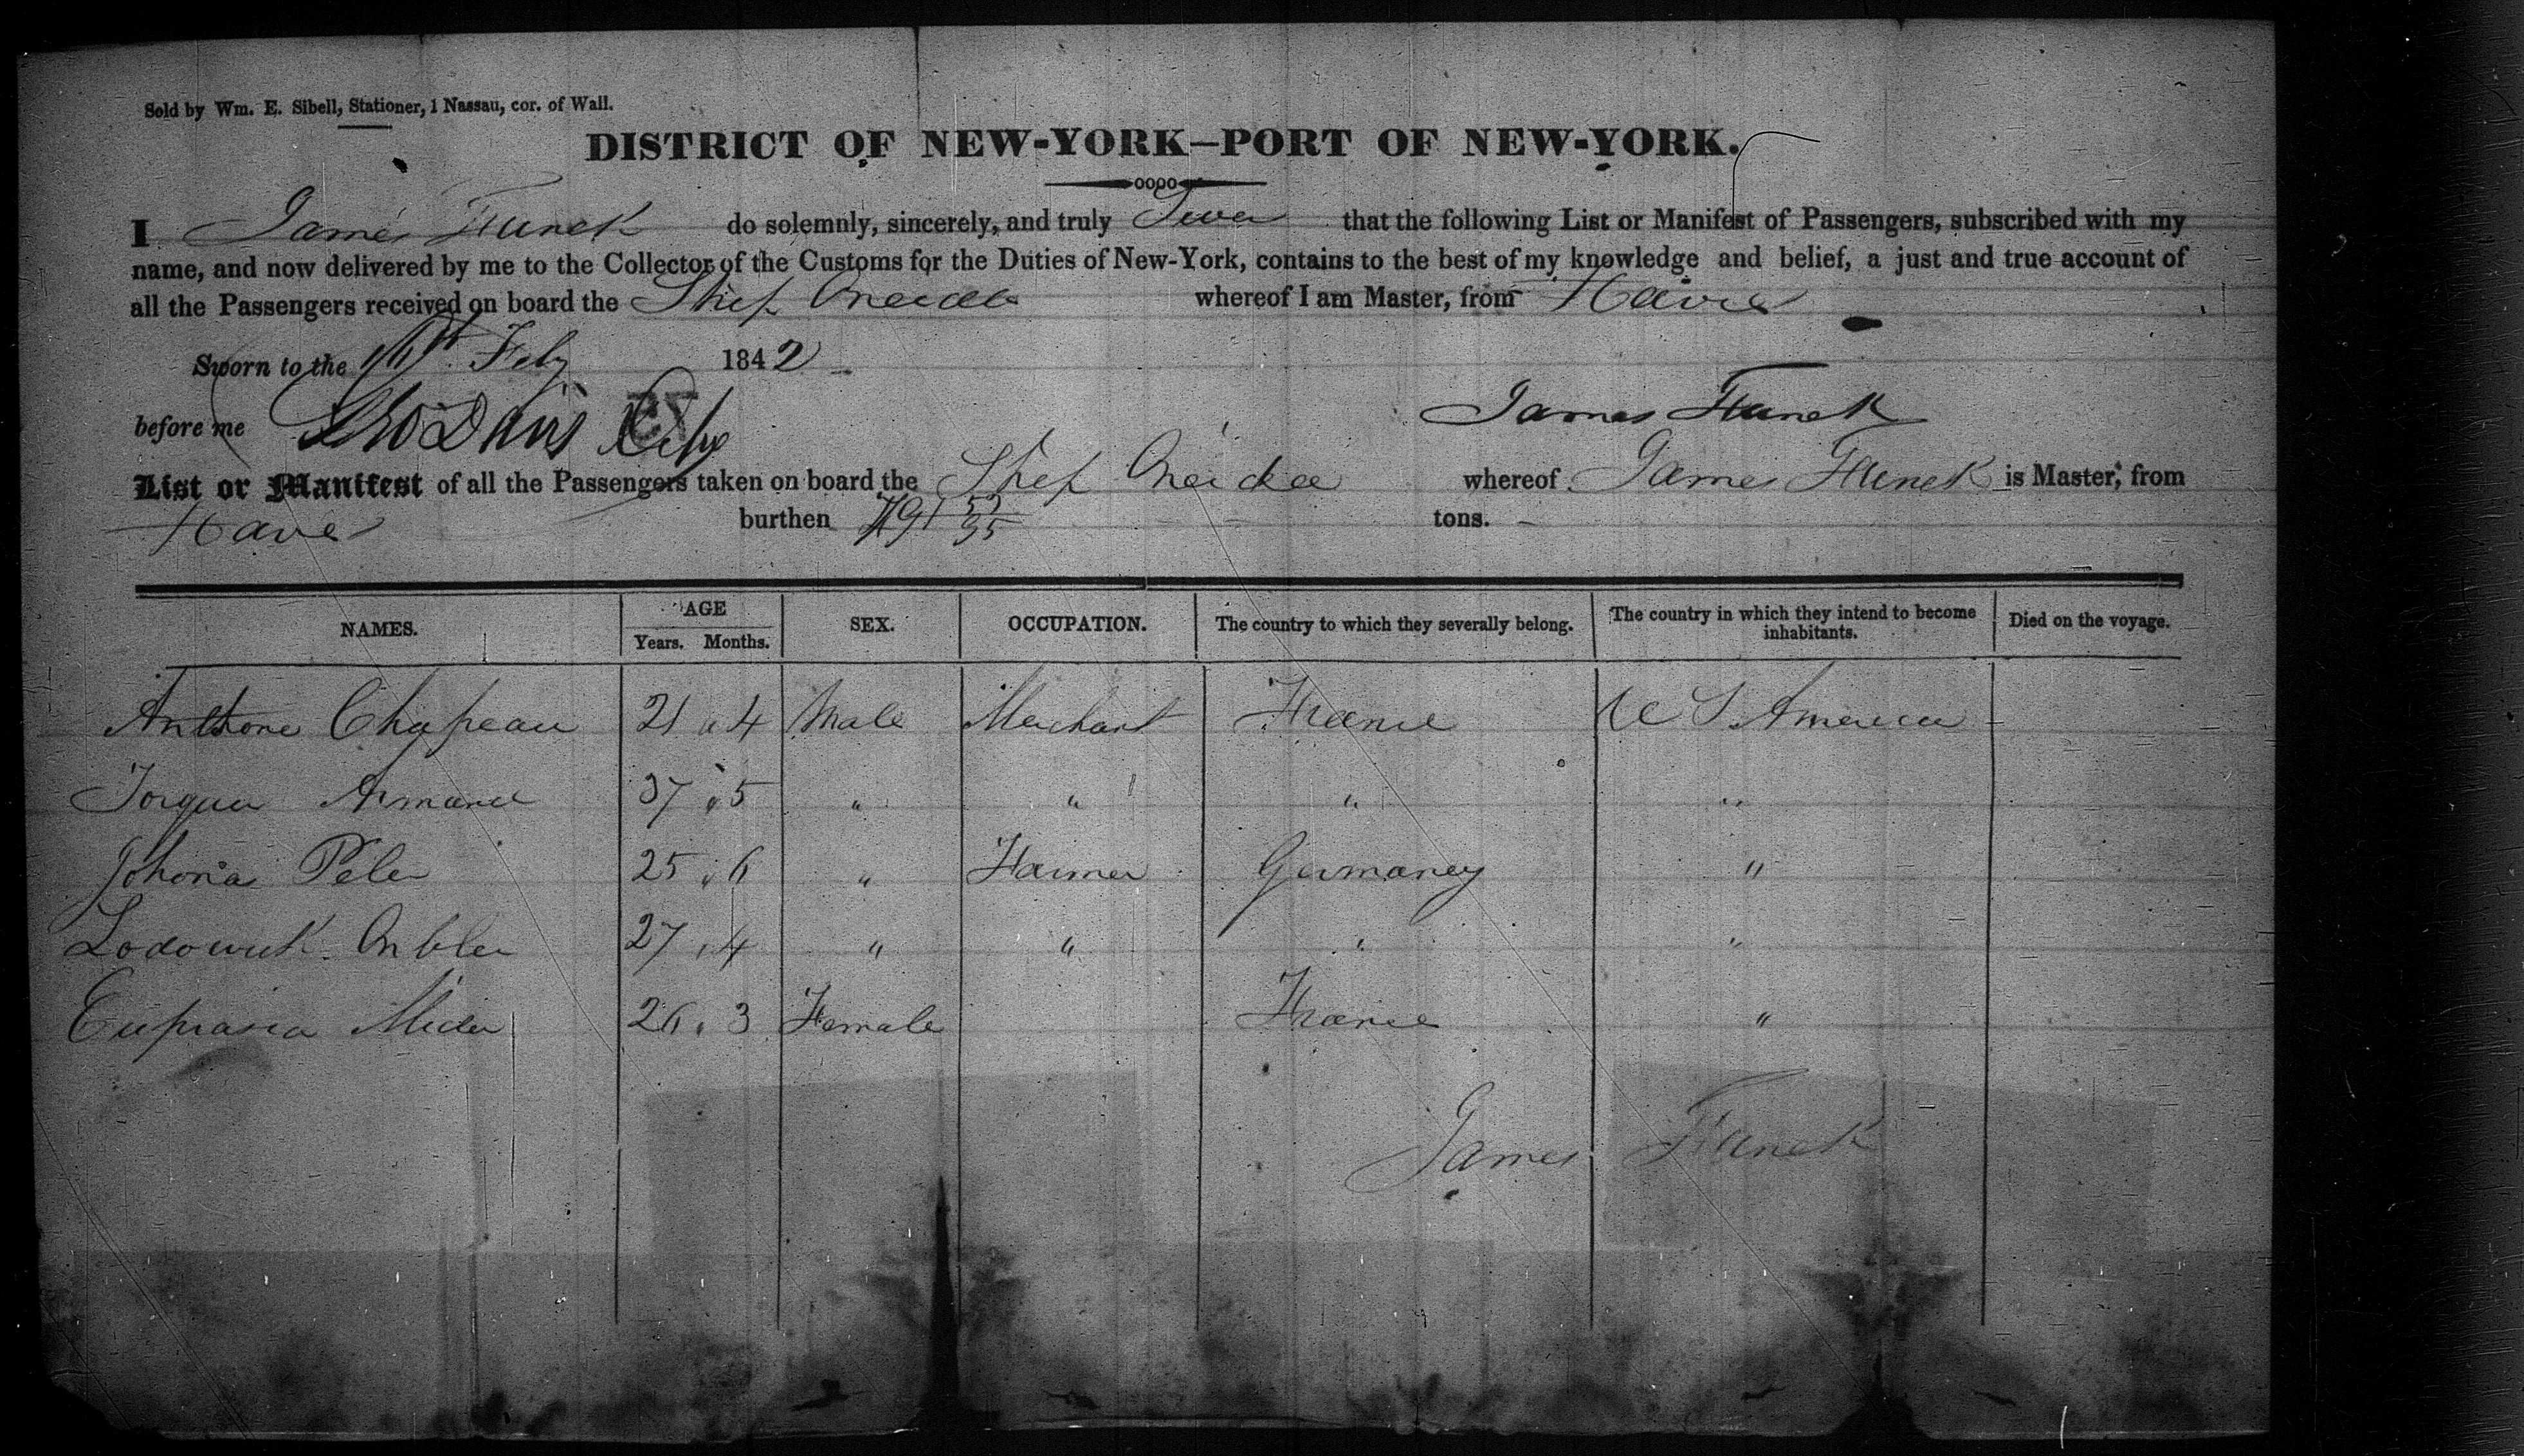 Sold by Wm. E. Sibell, Stationer, 1 Nassau, cor. of Wall.
DISTRICT OF NEW-YORK—PORT OF NEW-YORK.
I James Funck do solemnly, sincerely, and truly Swear that the following List or Manifest of Passengers, subscribed with my
name, and now delivered by me to the Collector of the Customs for the Duties of New-York, contains to the best of my knowledge and belief, a just and true account of
all the Passengers received on board the Ship Oneida whereof I am Master, from Havre
Sworn to the Feby 1842
before me Geo Davis
James Funck
List or Manifest of all the Passengers taken on board the Ship Oneida whereof James Funck is Master, from
Havre burthen 791 53/95 tons.
NAMES. AGE Years. Months. SEX. OCCUPATION. The country to which they severally belong. The country in which they intend to become inhabitants. Died on the voyage.
Anthone Chapeau 21 " 4 Male Merchant France U S America
Armand 37 " 5 " " " "
Johona Peler 25 " 6 " Farmer Germaney "
Lodowick Onbler 27 " 4 " " " "
Euprasia Mider 26 " 3 Female France "
James Funck